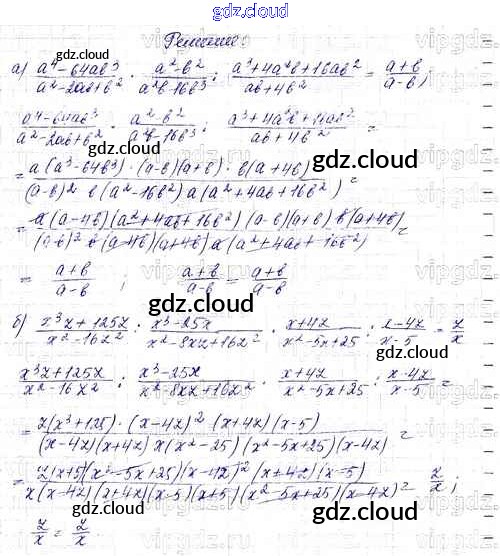 gdz.cloud
Решение
gdz.cloud gdz.cloud
а) (a⁴-64ab³)/(a²-2ab+b²) · (a²-b²)/(a²b-16b³) : (a³+4a²b+16ab²)/(ab+4b²) = (a+b)/(a-b);
(a⁴-64ab³)/(a²-2ab+b²) · (a²-b²)/(a²b-16b³) : (a³+4a²b+16ab²)/(ab+4b²) =
gdz.cloud
= (a(a³-64b³)·(a-b)(a+b)·b(a+4b))/((a-b)² b(a²-16b²) a(a²+4ab+16b²)) =
= (a(a-4b)(a²+4ab+16b²)(a-b)(a+b) b(a+4b))/((a-b)² b(a-4b)(a+4b) a(a²+4ab+16b²)) =
= (a+b)/(a-b); (a+b)/(a-b) = (a+b)/(a-b)
vipgdz
gdz.cloud
б) (x³z+125z)/(x²-16z²) : (x³-25x)/(x²-8xz+16z²) · (x+4z)/(x²-5x+25) : (x-4z)/(x-5) = z/x
gdz.cloud gdz.cloud
(x³z+125z)/(x²-16z²) : (x³-25x)/(x²-8xz+16z²) · (x+4z)/(x²-5x+25) : (x-4z)/(x-5) =
= (z(x³+125)·(x-4z)²(x+4z)(x-5))/((x-4z)(x+4z) x(x²-25)(x²-5x+25)(x-4z)) =
= (z(x+5)(x²-5x+25)(x-4z)²(x+4z)(x-5))/(x(x-4z)(x+4z)(x-5)(x+5)(x²-5x+25)(x-4z)) = z/x;
z/x = z/x
gdz.cloud